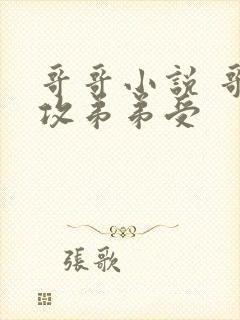 哥哥小說 哥
攻弟弟受
張歌